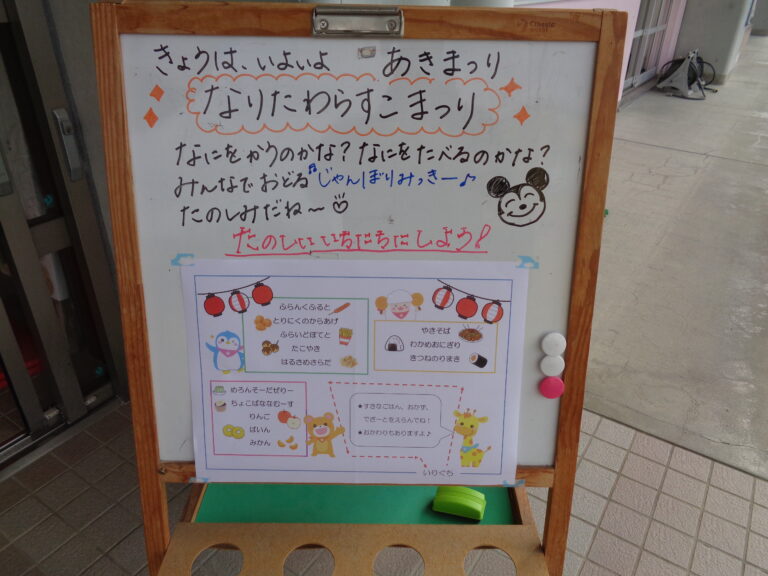 きょうは、いよいよ　あきまつり
なりたわらすこまつり
なにをかうのかな？なにをたべるのかな？
みんなでおどる♬じゃんぼりみっきー♪
たのしみだね〜♡
たのしいいちにちにしよう！
ふらんくふると
とりにくのからあげ
ふらいどぽてと
たこやき
はるさめさらだ
やきそば
わかめおにぎり
きつねのりまき
めろんそーだぜりー
ちょこばななむーす
りんご
ぱいん
みかん
★すきなごはん、おかず、
でざーとをえらんでね！
★おかわりもありますよ♪
いりぐち